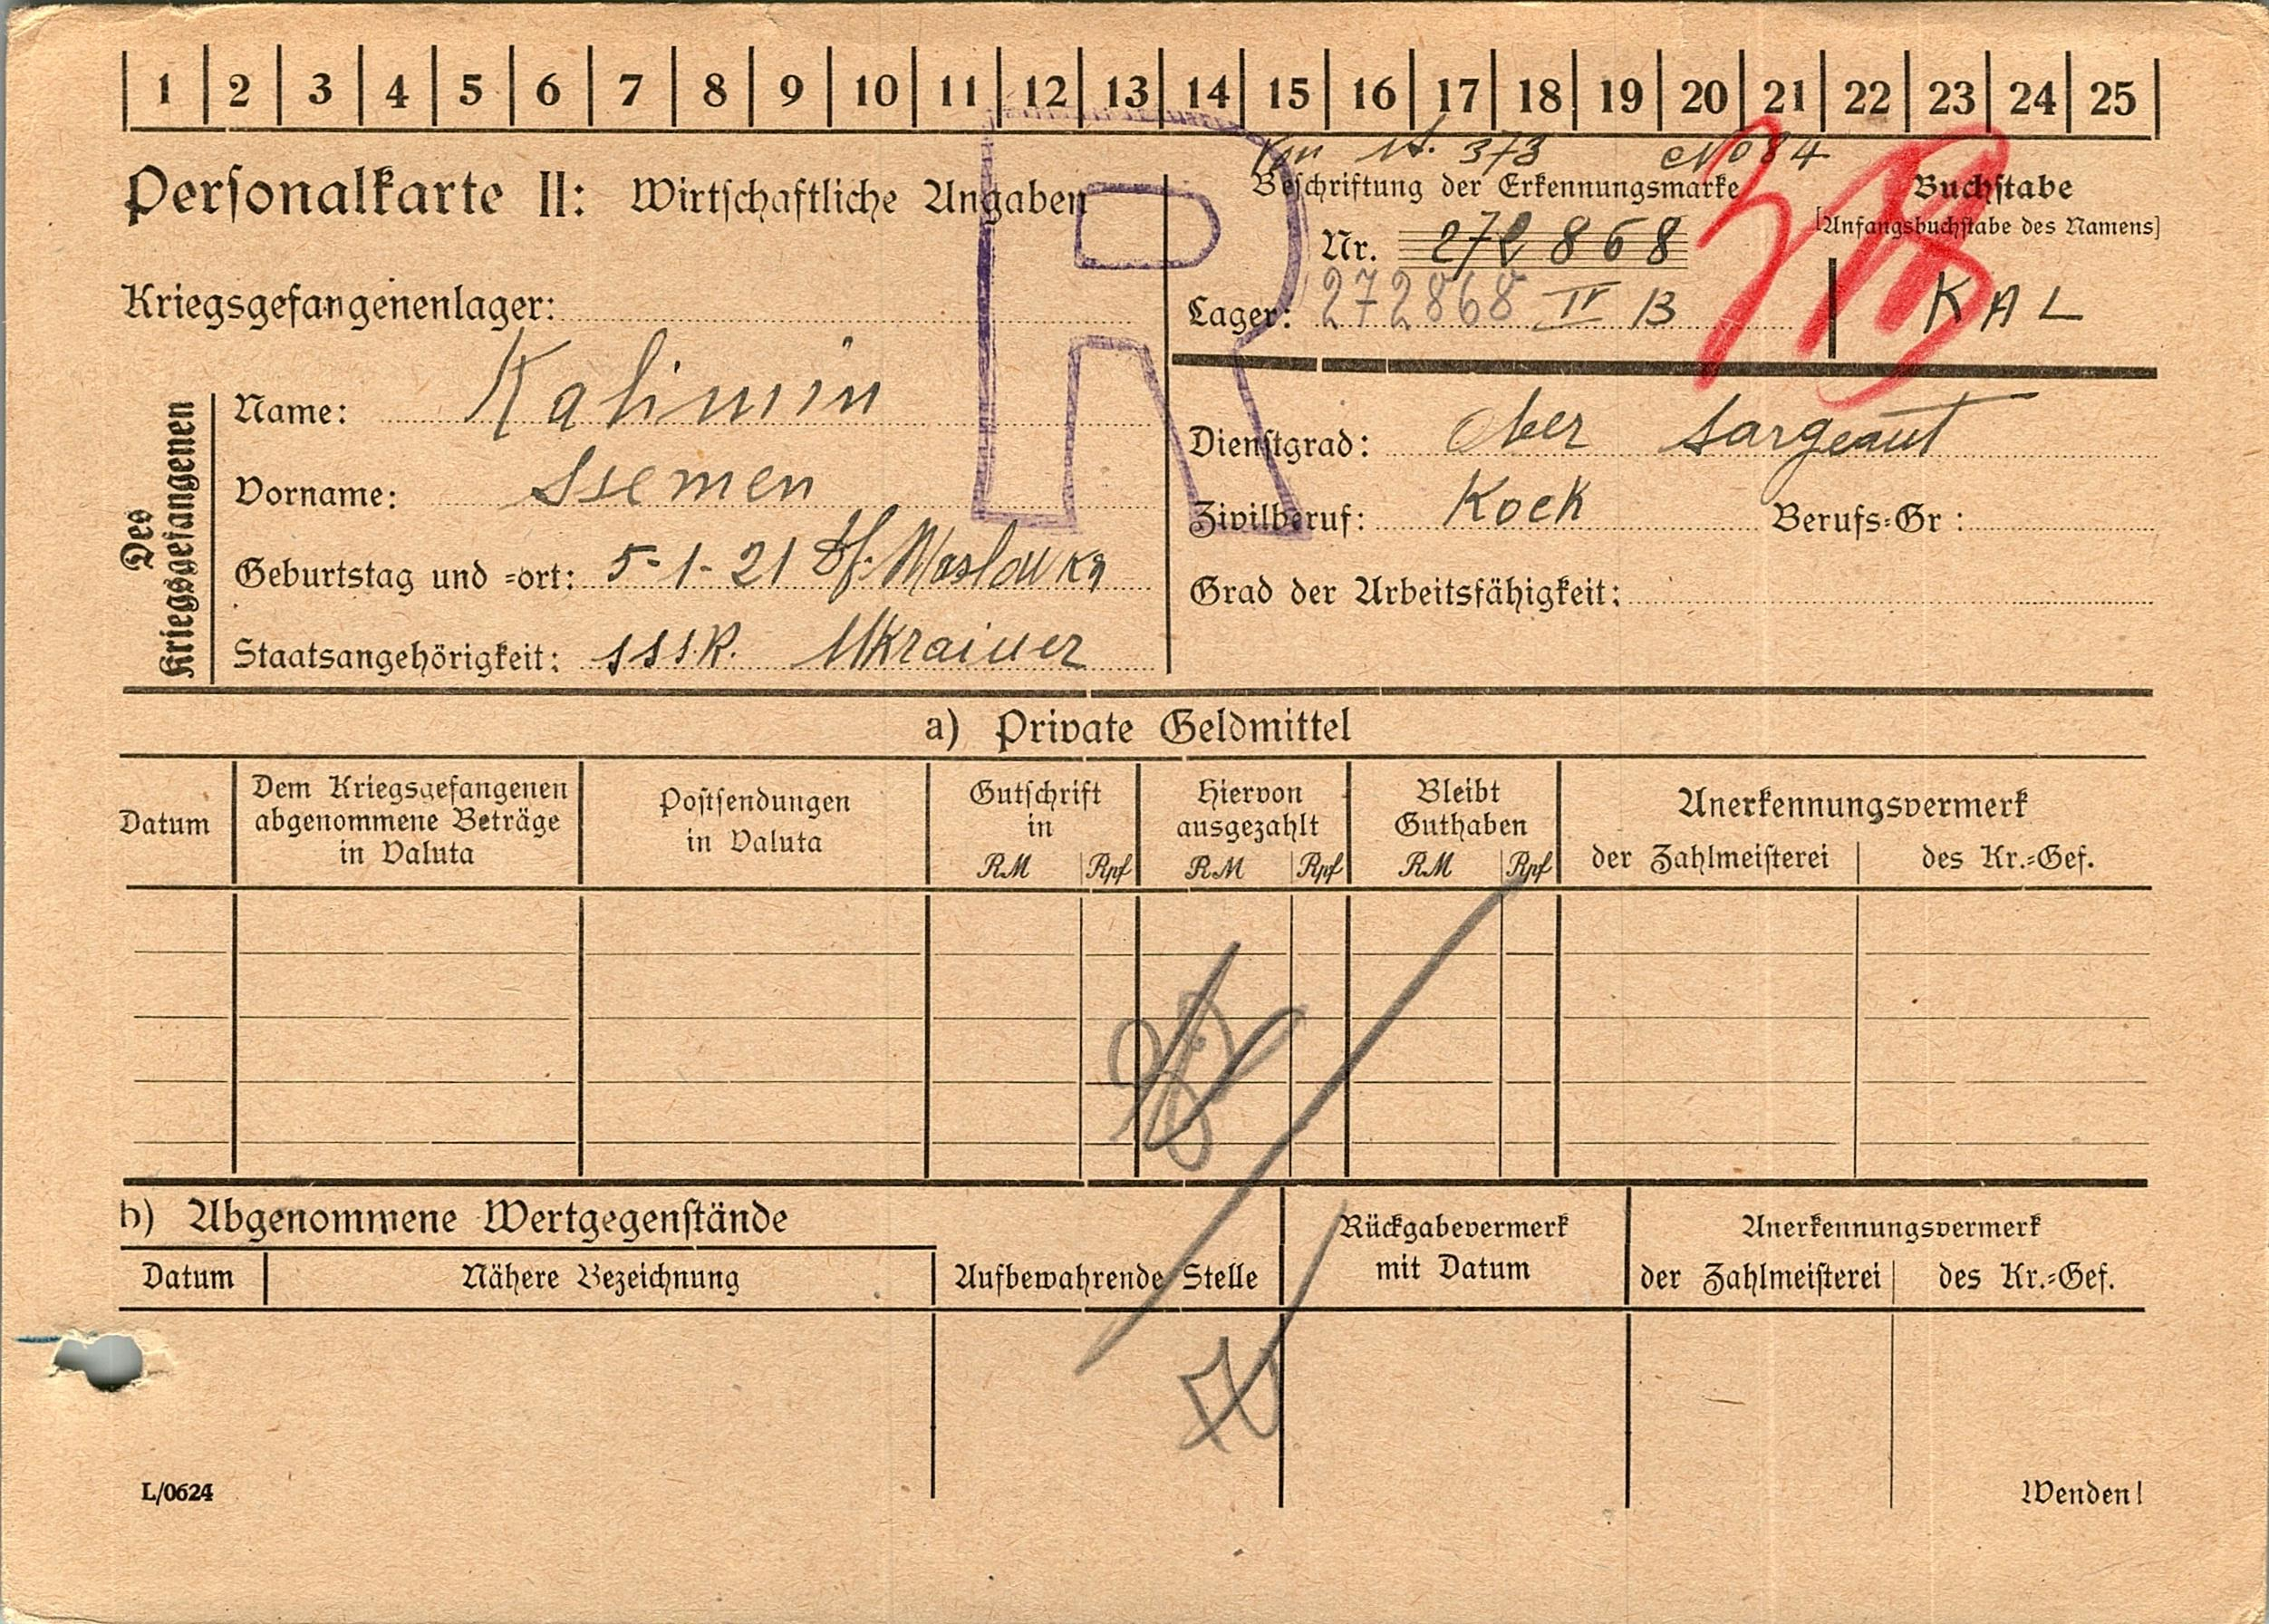 1 2 3 4 5 6 7 8 9 10 11 12 13 14 15 16 17 18 19 20 21 22 23 24 25
373 No 84
Personalkarte II: Wirtschaftliche Angaben
Beschriftung der Erkennungsmarke
Nr. 272868
Buchstabe
[Anfangsbuchstabe des Namens]
R
Kriegsgefangenenlager:
Lager: 272868 IV B
KAL
Des Kriegsgefangenen
Name: Kalinin
Vorname: Ssemen
Geburtstag und -ort: 5-1-21 Df. Maslowka
Staatsangehörigkeit: SSSR. Ukrainer
Dienstgrad: Ober Sargeant
Zivilberuf: Koch Berufs-Gr:
Grad der Arbeitsfähigkeit:
a) Private Geldmittel
Datum
Dem Kriegsgefangenen abgenommene Beträge in Valuta
Postsendungen in Valuta
Gutschrift in RM Rpf
Hiervon ausgezahlt RM Rpf
Bleibt Guthaben RM Rpf
Anerkennungsvermerk
der Zahlmeisterei des Kr.-Gef.
b) Abgenommene Wertgegenstände
Datum Nähere Bezeichnung Aufbewahrende Stelle
Rückgabevermerk mit Datum
Anerkennungsvermerk
der Zahlmeisterei des Kr.-Gef.
L/0624 Wenden!